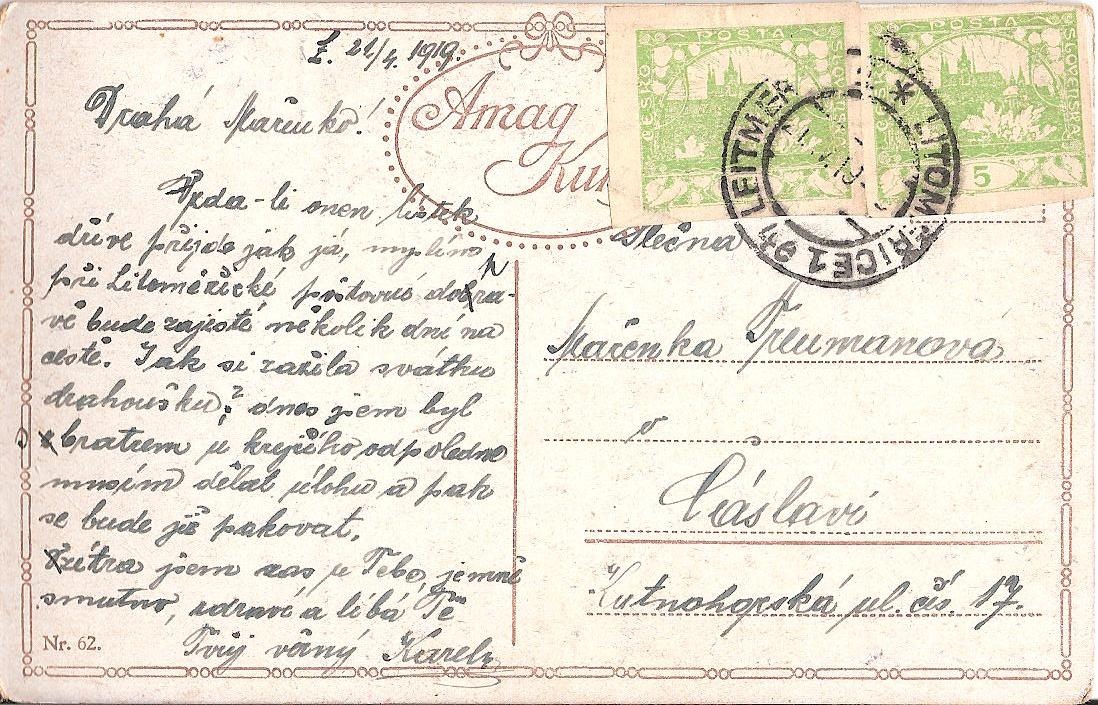 Ž. 21/4. 1919.
Drahá Mařenko!
Zda-li onen lístek
dříve přijde jak já, myslím
při Litoměřické poštovní dopra-
vě bude zajisté několik dní na
cestě. Jak si zažila svátku
drahoušku? dnes jem byl
s bratrem u krejčího odpoledne
musím dělat úlohu a pak
se bude již pakovat.
Zítra jsem zas u Tebe, je mně
smutno, zdraví a líbá Tě
Tvůj věrný Karel
Nr. 62.
Amag
POSTA
ČESKO
SLOVENSKÁ
POSTA
SLOVENSKÁ
5
LEITMER
LITOMĚŘICE 1
Slečna
Mařenka
v
Čáslavi
Kutnohorská ul. čís. 17.